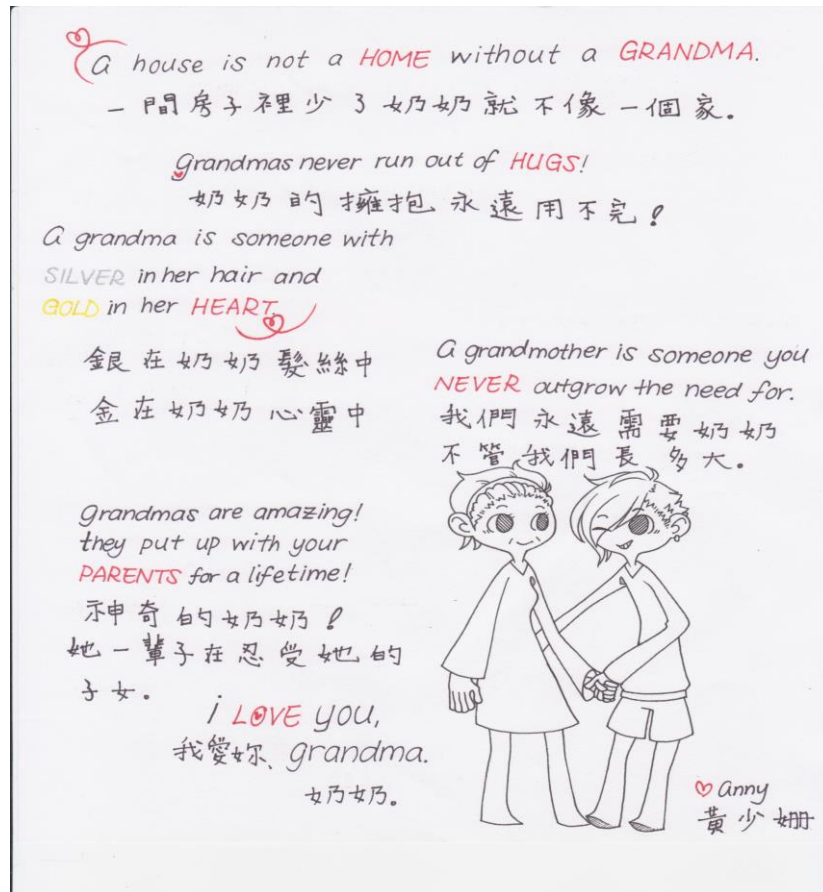 a house is not a HOME without a GRANDMA.
一間房子裡少了奶奶就不像一個家。
grandmas never run out of HUGS!
奶奶的擁抱永遠用不完!
a grandma is someone with
SILVER in her hair and
GOLD in her HEART.
銀在奶奶髮絲中
金在奶奶心靈中
a grandmother is someone you
NEVER outgrow the need for.
我們永遠需要奶奶
不管我們長多大。
grandmas are amazing!
they put up with your
PARENTS for a lifetime!
神奇的奶奶!
她一輩子在忍受她的
子女。
i LOVE you,
我愛妳、grandma.
奶奶。
anny
黃少姍